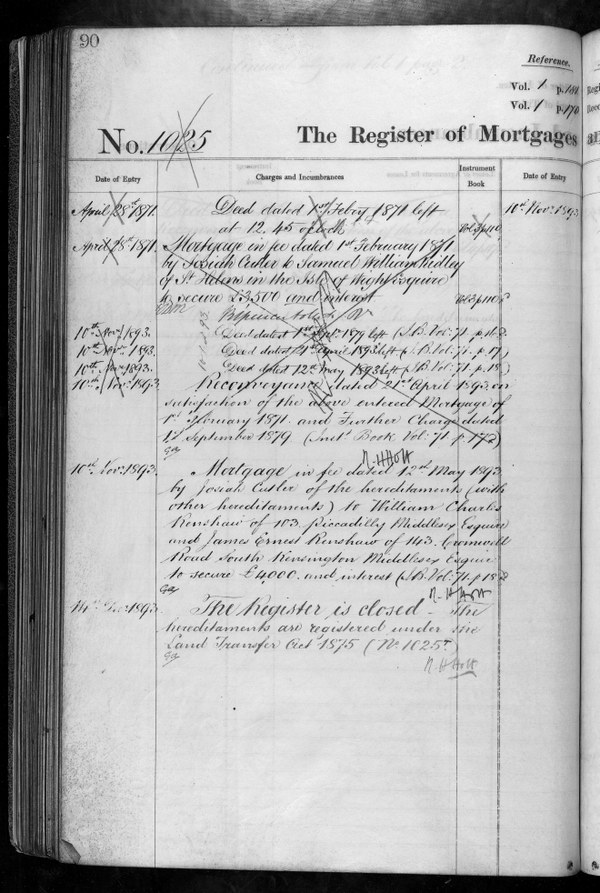 90
Reference.
Vol. 1 p. 181
Vol. 1 p. 170
No. 1025
The Register of Mortgages
Date of Entry
Charges and Incumbrances
Instrument Book
Date of Entry
April 28th 1871.
Deed dated 1st Febry 1871 left
10th Novr. 1893.
at 12.45 oclock
Vol. 3 p. 110
April 28th 1871.
Mortgage in fee dated 1st February 1871
by Josiah Cutler to Samuel William Ridley
of St. Helens in the Isle of Wight Esquire
to secure £3,500 and interest
Vol. 3 p. 110
10th Novr. 1893.
Deed dated 1st Sept. 1879 left (I.B. Vol: 71.
10th Novr. 1893.
Deed dated 21st April 1893 left (I.B. Vol: 71. p. 17)
10th Novr. 1893.
Deed dated 12th May 1893 left (I.B. Vol: 71. p. 18)
10th Novr. 1893.
Reconveyance dated 21st April 1893 in
satisfaction of the above entered Mortgage of
1st February 1871 and Further Charge dated
September 1879 (Inst. Book. Vol: 71 p. 17)
N. H. Holt
10th Novr. 1893.
Mortgage in fee dated 12th May 1893
by Josiah Cutler of the hereditaments (with
other hereditaments) to William Charles
Renshaw of 103 Piccadilly Middlesex Esquire
and James Ernest Renshaw of 143 Cromwell
Road South Kensington Middlesex Esquire
to secure £4000 and interest (I.B. Vol: 71. p. 18)
N. H. Holt
Decr. 1893.
The Register is closed - The
hereditaments are registered under the
Land Transfer Act 1875 (No. 1025)
N H Holt